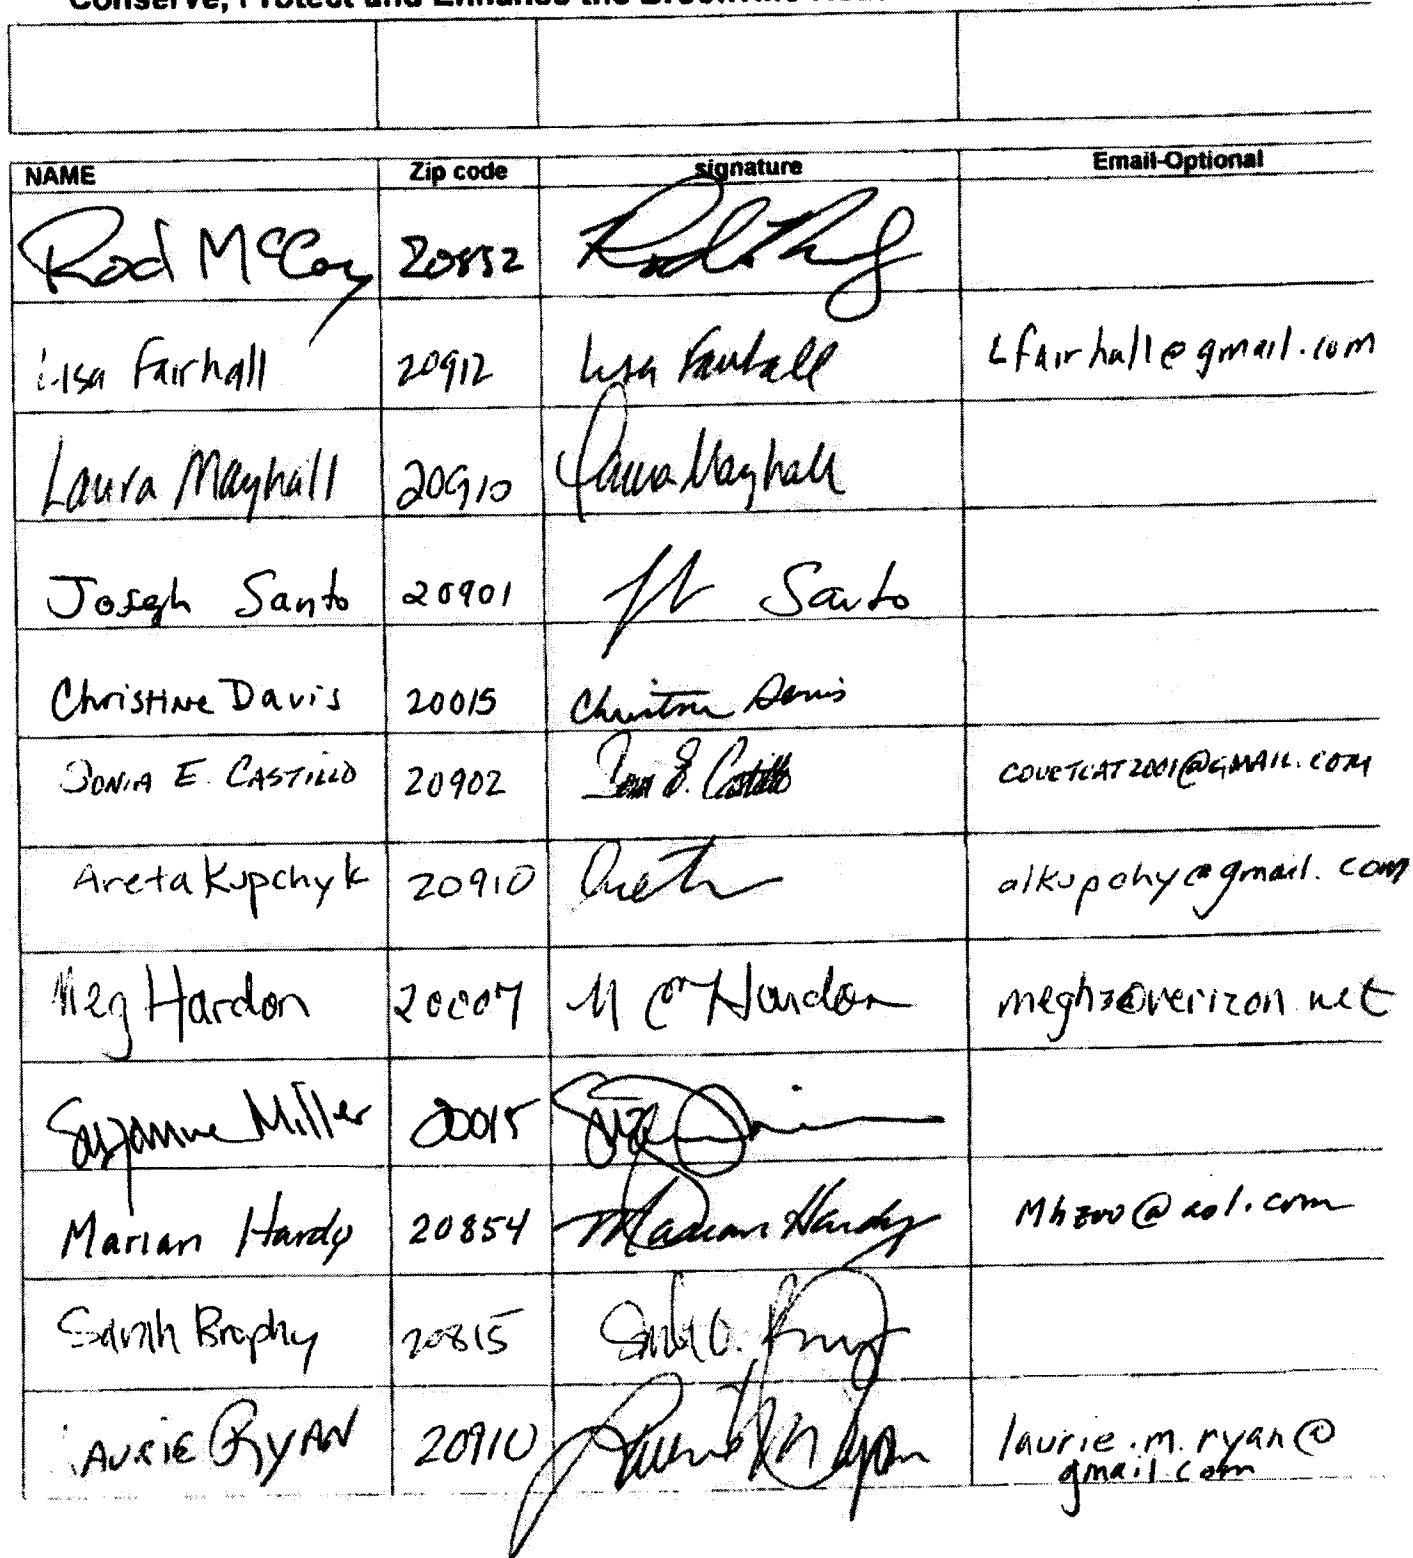 Conserve, Protect and Enhance the
NAME Zip code signature Email-Optional
Rod McCoy 20852
Lisa Fairhall 20912 Lisa Fairhall Lfairhall@gmail.com
Laura Mayhall 20910 Laura Mayhall
Joseph Santo 20901 Santo
Christine Davis 20015 Christine Davis
SONIA E. CASTILLO 20902 Sonia E. Castillo
Areta Kupchyk 20910 Areta alkupchy@gmail.com
Meg Hardon 20007 M Hardon
Suzanne Miller 20015
Marian Hardy 20854 Marian Hardy Mhzoo@aol.com
Sarah Brophy 20815
LAURIE RYAN 20910 Laurie M Ryan laurie.m.ryan@
gmail.com